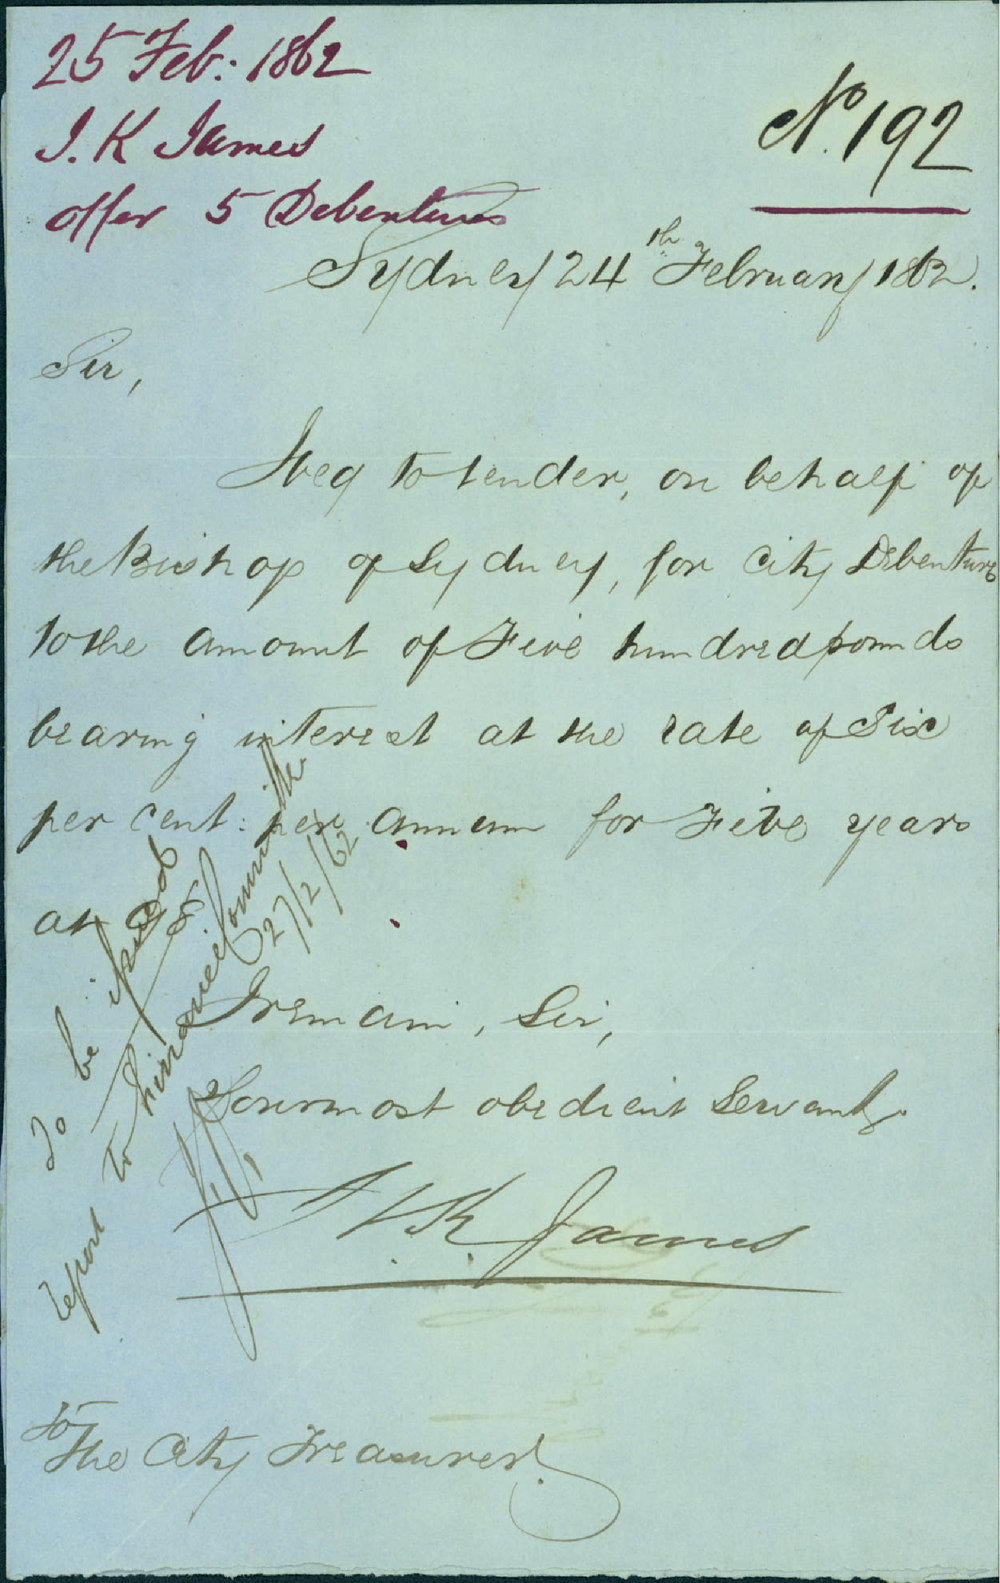 25 Feb: 1862
J. K James
offer 5 Debentures
No. 192
Sydney 24th February 1862.
Sir,
I beg to tender, on behalf of
the Bishop of Sydney, for City Debentures
to the amount of Five hundred pounds
bearing interest at the rate of Six
per cent: per annum for Five years
at 98
I remain, Sir,
Your most obedient Servant
J. K. James
To
The City Treasurer.
To be
report to Finance Committee
27/2/62